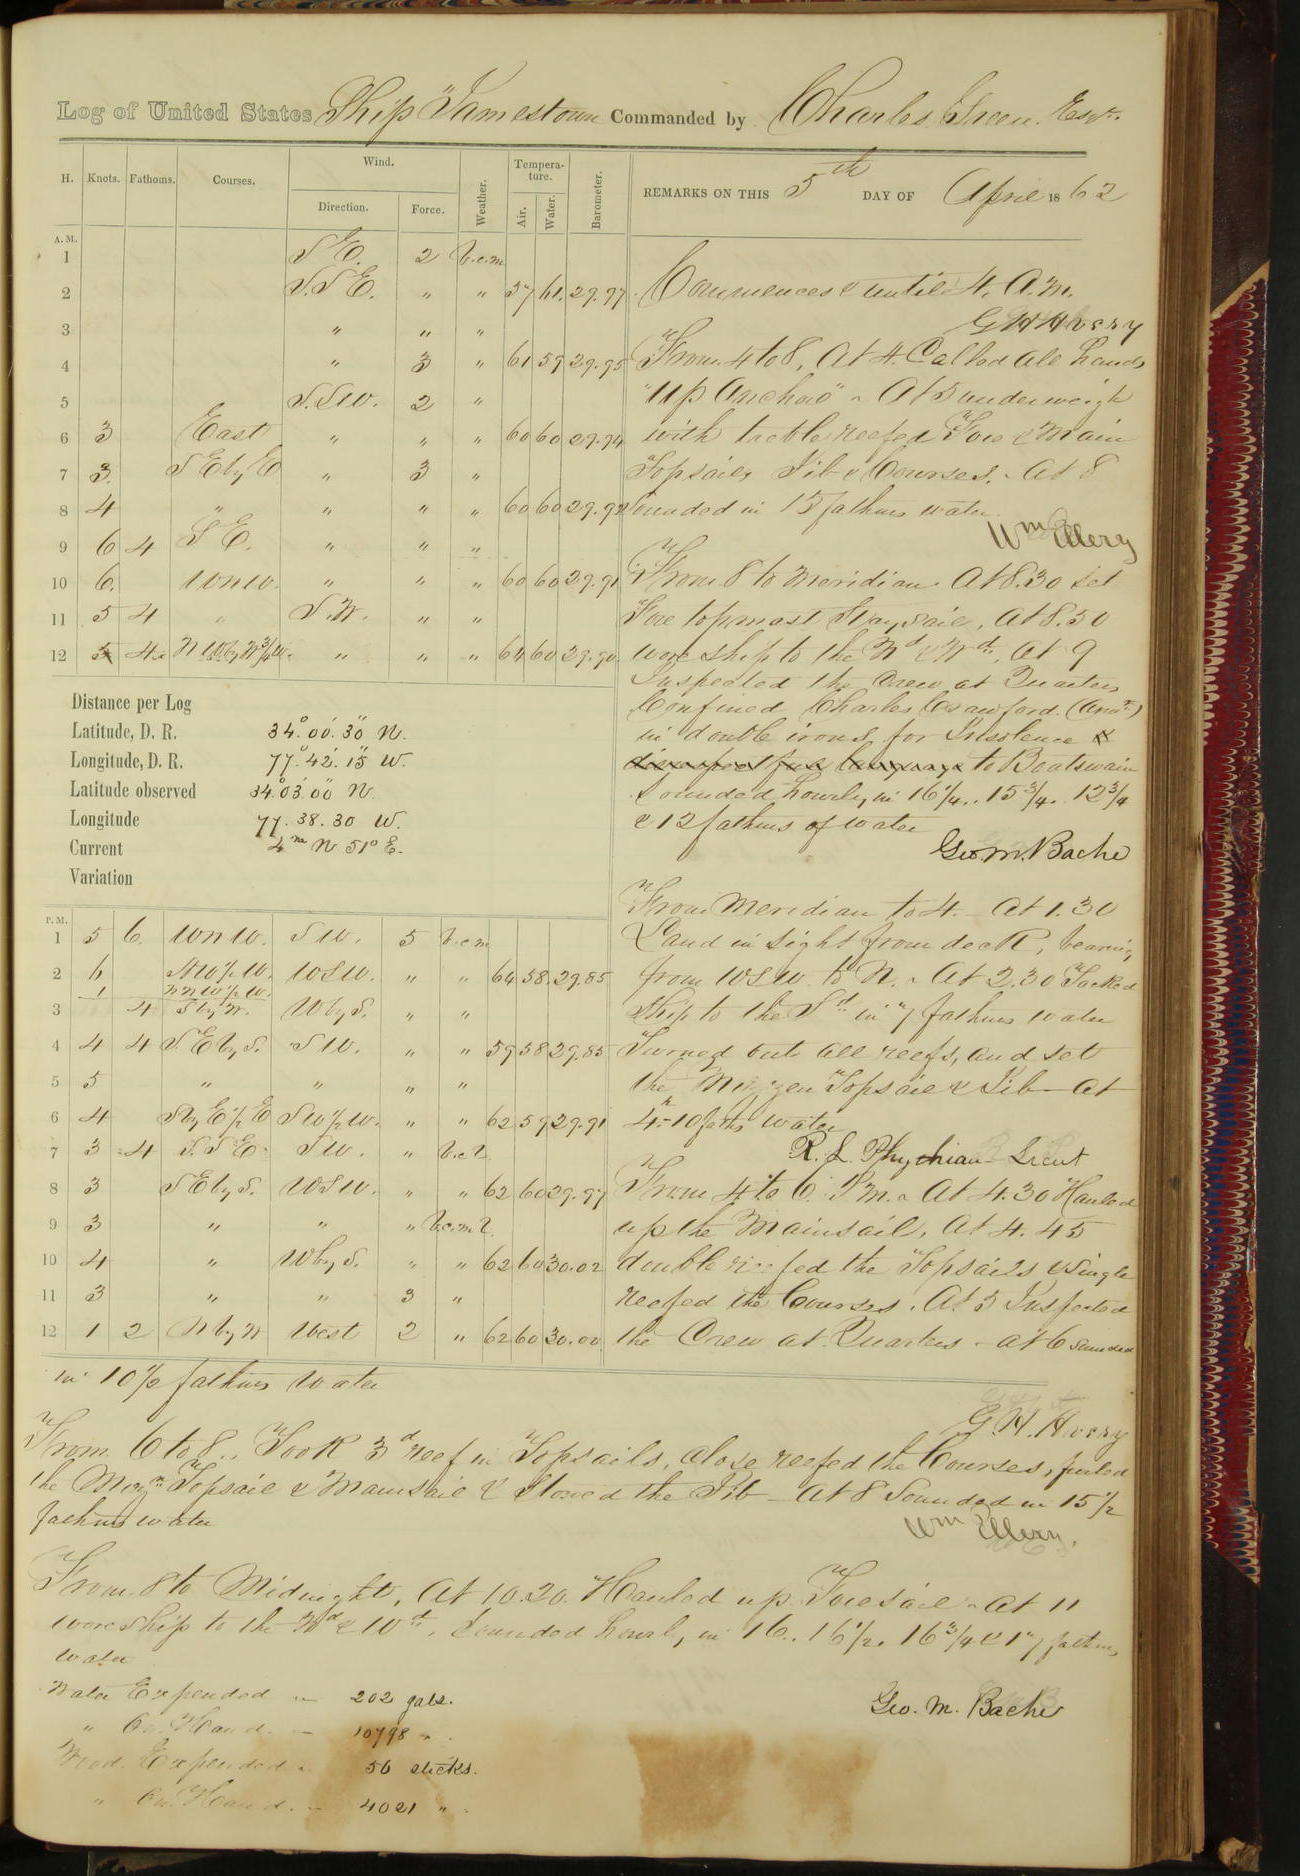 Log of United States Ship "Jamestown Commanded by Charles Green Esqr.
H. Knots. Fathoms. Courses. Wind. Direction. Force. Weather. Tempera-ture. Air. Water. Barometer. REMARKS ON THIS 5th DAY OF April 1862
A.M.
1 S E. 2 b.c.m.
2 S.S E. " " 57 61. 29.97 Commences & until 4. A.M.
G H Avery
3 " " "
4 " 3 " 61 59 29.95 From 4 to 8, At 4. Called all hands
5 S.S W. 2 " "up Anchor" - At 5 underweigh
6 3 East " " " 60 60 29.94 with treble reefed Fore & Main
7 3. S E by E " 3 " Topsails, Jib & Courses. - At 8
8 4 " " " " 60 60 29.92 Sounded in 15 fathms water.
Wm Ellery
9 6 4 S E. " " "
10 6. W N W. " " " 60 60 29.91 From 8 to Meridian. At 8.30 set
11 5 4 " S.W. " " Fore topmast Staysail, At 8.50
12 5 4 N W by W 3/4 W. " " " 64 60 29.90. wore ship to the Nd & Wd. At 9
Inspected the Crew at Quarters
Confined Charles Crawford. (Ord.)
in double irons for Insolence &
disrespectful language to Boatswain
Sounded hourly in 16 1/4.. 15 3/4. 12 3/4
& 12 fathms of water
Geo. M. Bache
Distance per Log
Latitude, D. R. 34° 00' 30" N.
Longitude, D. R. 77° 42' 15" W.
Latitude observed 34° 03' 00" N.
Longitude 77. 38. 30 W.
Current 4m N 51° E.
Variation
From Meridian to 4. At 1.30
P.M.
1 5 6. W N W. S W. 5 b.c.m Land in sight from deck, bearing
2 6 N W 1/2 W. W S W. " " 64 58. 29.85 from W S W. to N. - At 2.30 Tacked
1 N N W 1/2 W.
3 4 S by W. W by S. " " Ship to the Sd in 7 fathms water
4 4 4 S. E by S. S W. " " 59 58 29.85 Turned out all reefs, and set
5 5 " " " " the Mizzen Topsail & Jib - At
6 4 S by E 1/2 E S W 1/2 W. " " 62 59 29.91 4 - 10 faths water
R. L. Phythian Lieut
7 3 4 S. S E. S W. " b.c.q.
8 3 S E by S. W S W. " " 62 60 29.97 From 4 to 6. P.M. - At 4.30 Hauled
9 3 " " " b.c.m.q. up the Mainsail, At 4.45
10 4 " W by S. " " 62 60 30.02 double reefed the Topsails & Single
11 3 " " 3 " reefed the Courses. At 5 Inspected
12 1 2 N by W West 2 " 62 60 30.00 the Crew at Quarters - at 6 sounded
in 10 1/2 fathms water
G. H. Avery
From 6 to 8.. Took 3d reef in Topsails, close reefed the Courses, furled
the Mizn Topsail & Mainsail & stowed the Jib - At 8 Sounded in 15 1/2
fathms water
Wm Ellery.
From 8 to Midnight, At 10.20. Hauled up Foresail - At 11
wore ship to the Nd & Wd. Sounded hourly in 16.. 16 1/2. 16 3/4 & 17 fathms
water
Geo. M. Bache
Water Expended " 202 gals.
" On Hand. " 10798 "
Wood Expended " 56 sticks.
" On Hand. " 4021 "